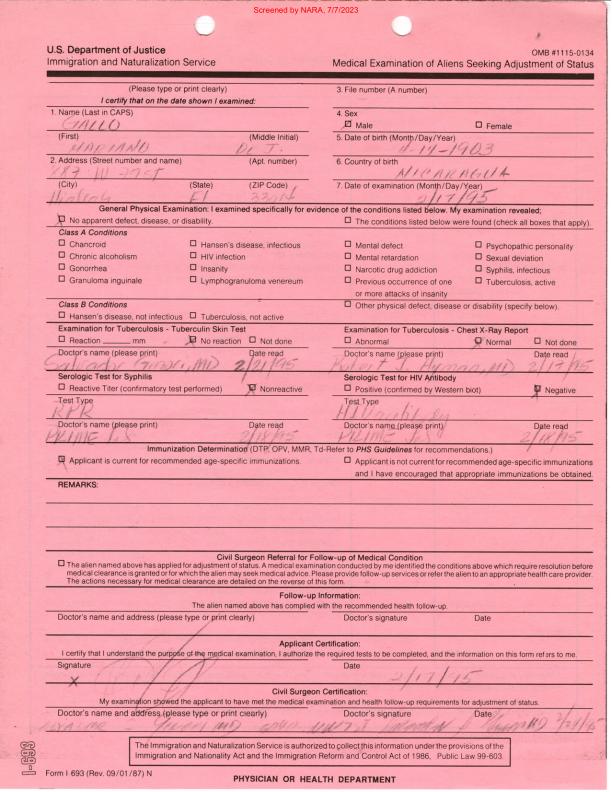 Screened by NARA, 7/7/2023
U.S. Department of Justice
Immigration and Naturalization Service
OMB #1115-0134
Medical Examination of Aliens Seeking Adjustment of Status
(Please type or print clearly)
I certify that on the date shown I examined:
3. File number (A number)
1. Name (Last in CAPS)
GALLO
4. Sex
Male
Female
(First)
(Middle Initial)
MARIANO
De J.
5. Date of birth (Month/Day/Year)
2. Address (Street number and name)
(Apt. number)
6. Country of birth
NICARAGUA
(City)
(State)
(ZIP Code)
Hialeah
Fl
7. Date of examination (Month/Day/Year)
2/17/95
General Physical Examination: I examined specifically for evidence of the conditions listed below. My examination revealed;
No apparent defect, disease, or disability.
The conditions listed below were found (check all boxes that apply).
Class A Conditions
Chancroid
Hansen's disease, infectious
Mental defect
Psychopathic personality
Chronic alcoholism
HIV infection
Mental retardation
Sexual deviation
Gonorrhea
Insanity
Narcotic drug addiction
Syphilis, infectious
Granuloma inguinale
Lymphogranuloma venereum
Previous occurrence of one
or more attacks of insanity
Tuberculosis, active
Class B Conditions
Other physical defect, disease or disability (specify below).
Hansen's disease, not infectious
Tuberculosis, not active
Examination for Tuberculosis - Tuberculin Skin Test
Examination for Tuberculosis - Chest X-Ray Report
Reaction ______ mm
No reaction
Not done
Abnormal
Normal
Not done
Doctor's name (please print)
Date read
Doctor's name (please print)
Date read
MD 2/21/95
Robert J. Hyman, MD 2/17/95
Serologic Test for Syphilis
Serologic Test for HIV Antibody
Reactive Titer (confirmatory test performed)
Nonreactive
Positive (confirmed by Western biot)
Negative
Test Type
RPR
Test Type
Doctor's name (please print)
Date read
Doctor's name (please print)
Date read
PRIME 2/18/95
PRIME 2/18/95
Immunization Determination (DTP, OPV, MMR, Td-Refer to PHS Guidelines for recommendations.)
Applicant is current for recommended age-specific immunizations.
Applicant is not current for recommended age-specific immunizations
and I have encouraged that appropriate immunizations be obtained.
REMARKS:
Civil Surgeon Referral for Follow-up of Medical Condition
The alien named above has applied for adjustment of status. A medical examination conducted by me identified the conditions above which require resolution before
medical clearance is granted or for which the alien may seek medical advice. Please provide follow-up services or refer the alien to an appropriate health care provider.
The actions necessary for medical clearance are detailed on the reverse of this form.
Follow-up Information:
The alien named above has complied with the recommended health follow-up.
Doctor's name and address (please type or print clearly)
Doctor's signature
Date
Applicant Certification:
I certify that I understand the purpose of the medical examination, I authorize the required tests to be completed, and the information on this form refers to me.
Signature
Date
X
2/17/95
Civil Surgeon Certification:
My examination showed the applicant to have met the medical examination and health follow-up requirements for adjustment of status.
Doctor's name and address (please type or print clearly)
Doctor's signature
Date
The Immigration and Naturalization Service is authorized to collect this information under the provisions of the
Immigration and Nationality Act and the Immigration Reform and Control Act of 1986, Public Law 99-603.
I-693
Form I 693 (Rev. 09/01/87) N
PHYSICIAN OR HEALTH DEPARTMENT